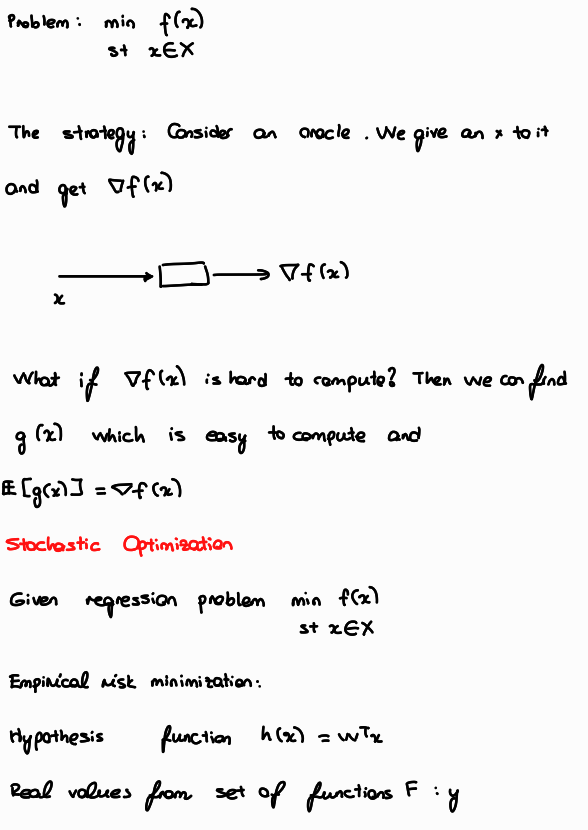 Problem: min f(x)
st x∈X
The strategy: Consider an oracle. We give an x to it
and get ∇f(x)
x → ∇f(x)
What if ∇f(x) is hard to compute? Then we can find
g(x) which is easy to compute and
𝔼[g(x)] = ∇f(x)
Stochastic Optimization
Given regression problem min f(x)
st x∈X
Empirical risk minimization:
Hypothesis function h(x) = wᵀx
Real values from set of functions F : y